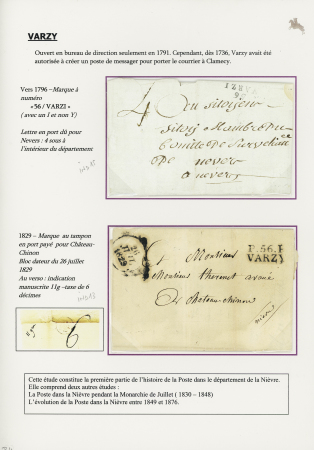 VARZY
Ouvert en bureau de direction seulement en 1791. Cependant, dès 1736, Varzy avait été
autorisée à créer un poste de messager pour porter le courrier à Clamecy.
Vers 1796 –Marque à
numéro
« 56 / VARZI »
( avec un I et non Y)
Lettre en port dû pour
Nevers : 4 sous à
l'intérieur du département
4
au Citoyen
Comité de Surveillance
De nevers
a nevers
1829 – Marque au tampon
en port payé pour Château-
Chinon
Bloc dateur du 26 juillet
1829
Au verso : indication
manuscrite 11g –taxe de 6
décimes
6
P.56.P
VARZY
Monsieur
Monsieur thevenet avoué
à Chateau-chinon
Cette étude constitue la première partie de l'histoire de la Poste dans le département de la Nièvre.
Elle comprend deux autres études :
La Poste dans la Nièvre pendant la Monarchie de Juillet ( 1830 – 1848)
L'évolution de la Poste dans la Nièvre entre 1849 et 1876.